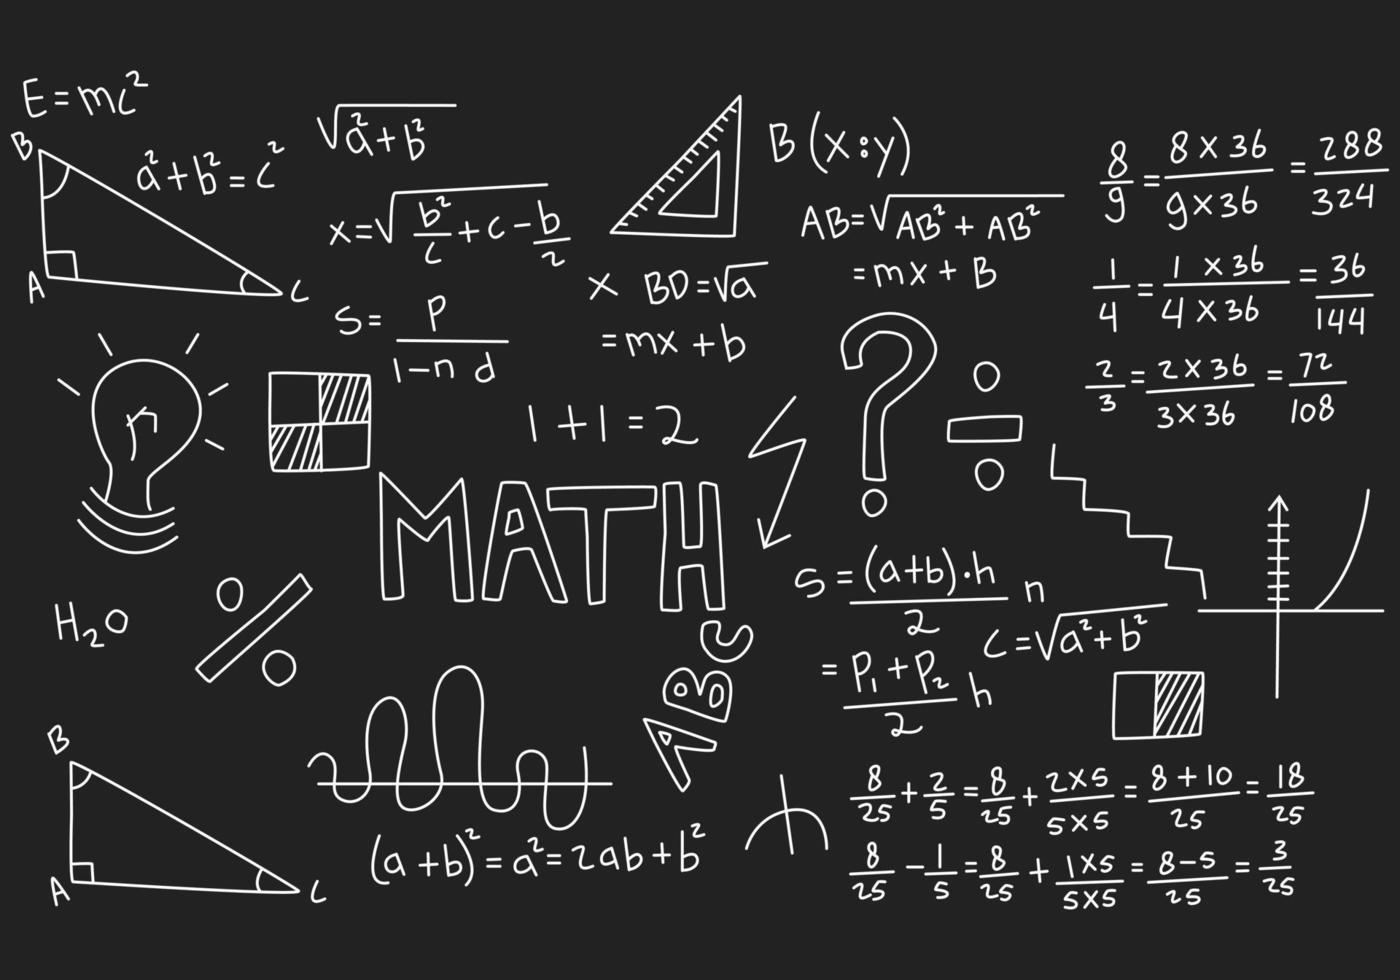 E = mc²
B
a² + b² = c²
A
C
√a² + b²
x = √b²/c + c - b/2
S = p/1-n d
B (x:y)
AB = √AB² + AB²
= mx + B
x BD = √a
= mx + b
8/9 = 8 x 36/9 x 36 = 288/324
1/4 = 1 x 36/4 x 36 = 36/144
2/3 = 2 x 36/3 x 36 = 72/108
1 + 1 = 2
?
÷
MATH
H₂O
%
ABC
S = (a+b)·h/2 n
c = √a² + b²
= P₁ + P₂/2 h
B
A
C
(a + b)² = a² = 2ab + b²
8/25 + 2/5 = 8/25 + 2x5/5x5 = 8 + 10/25 = 18/25
8/25 - 1/5 = 8/25 + 1x5/5x5 = 8-5/25 = 3/25